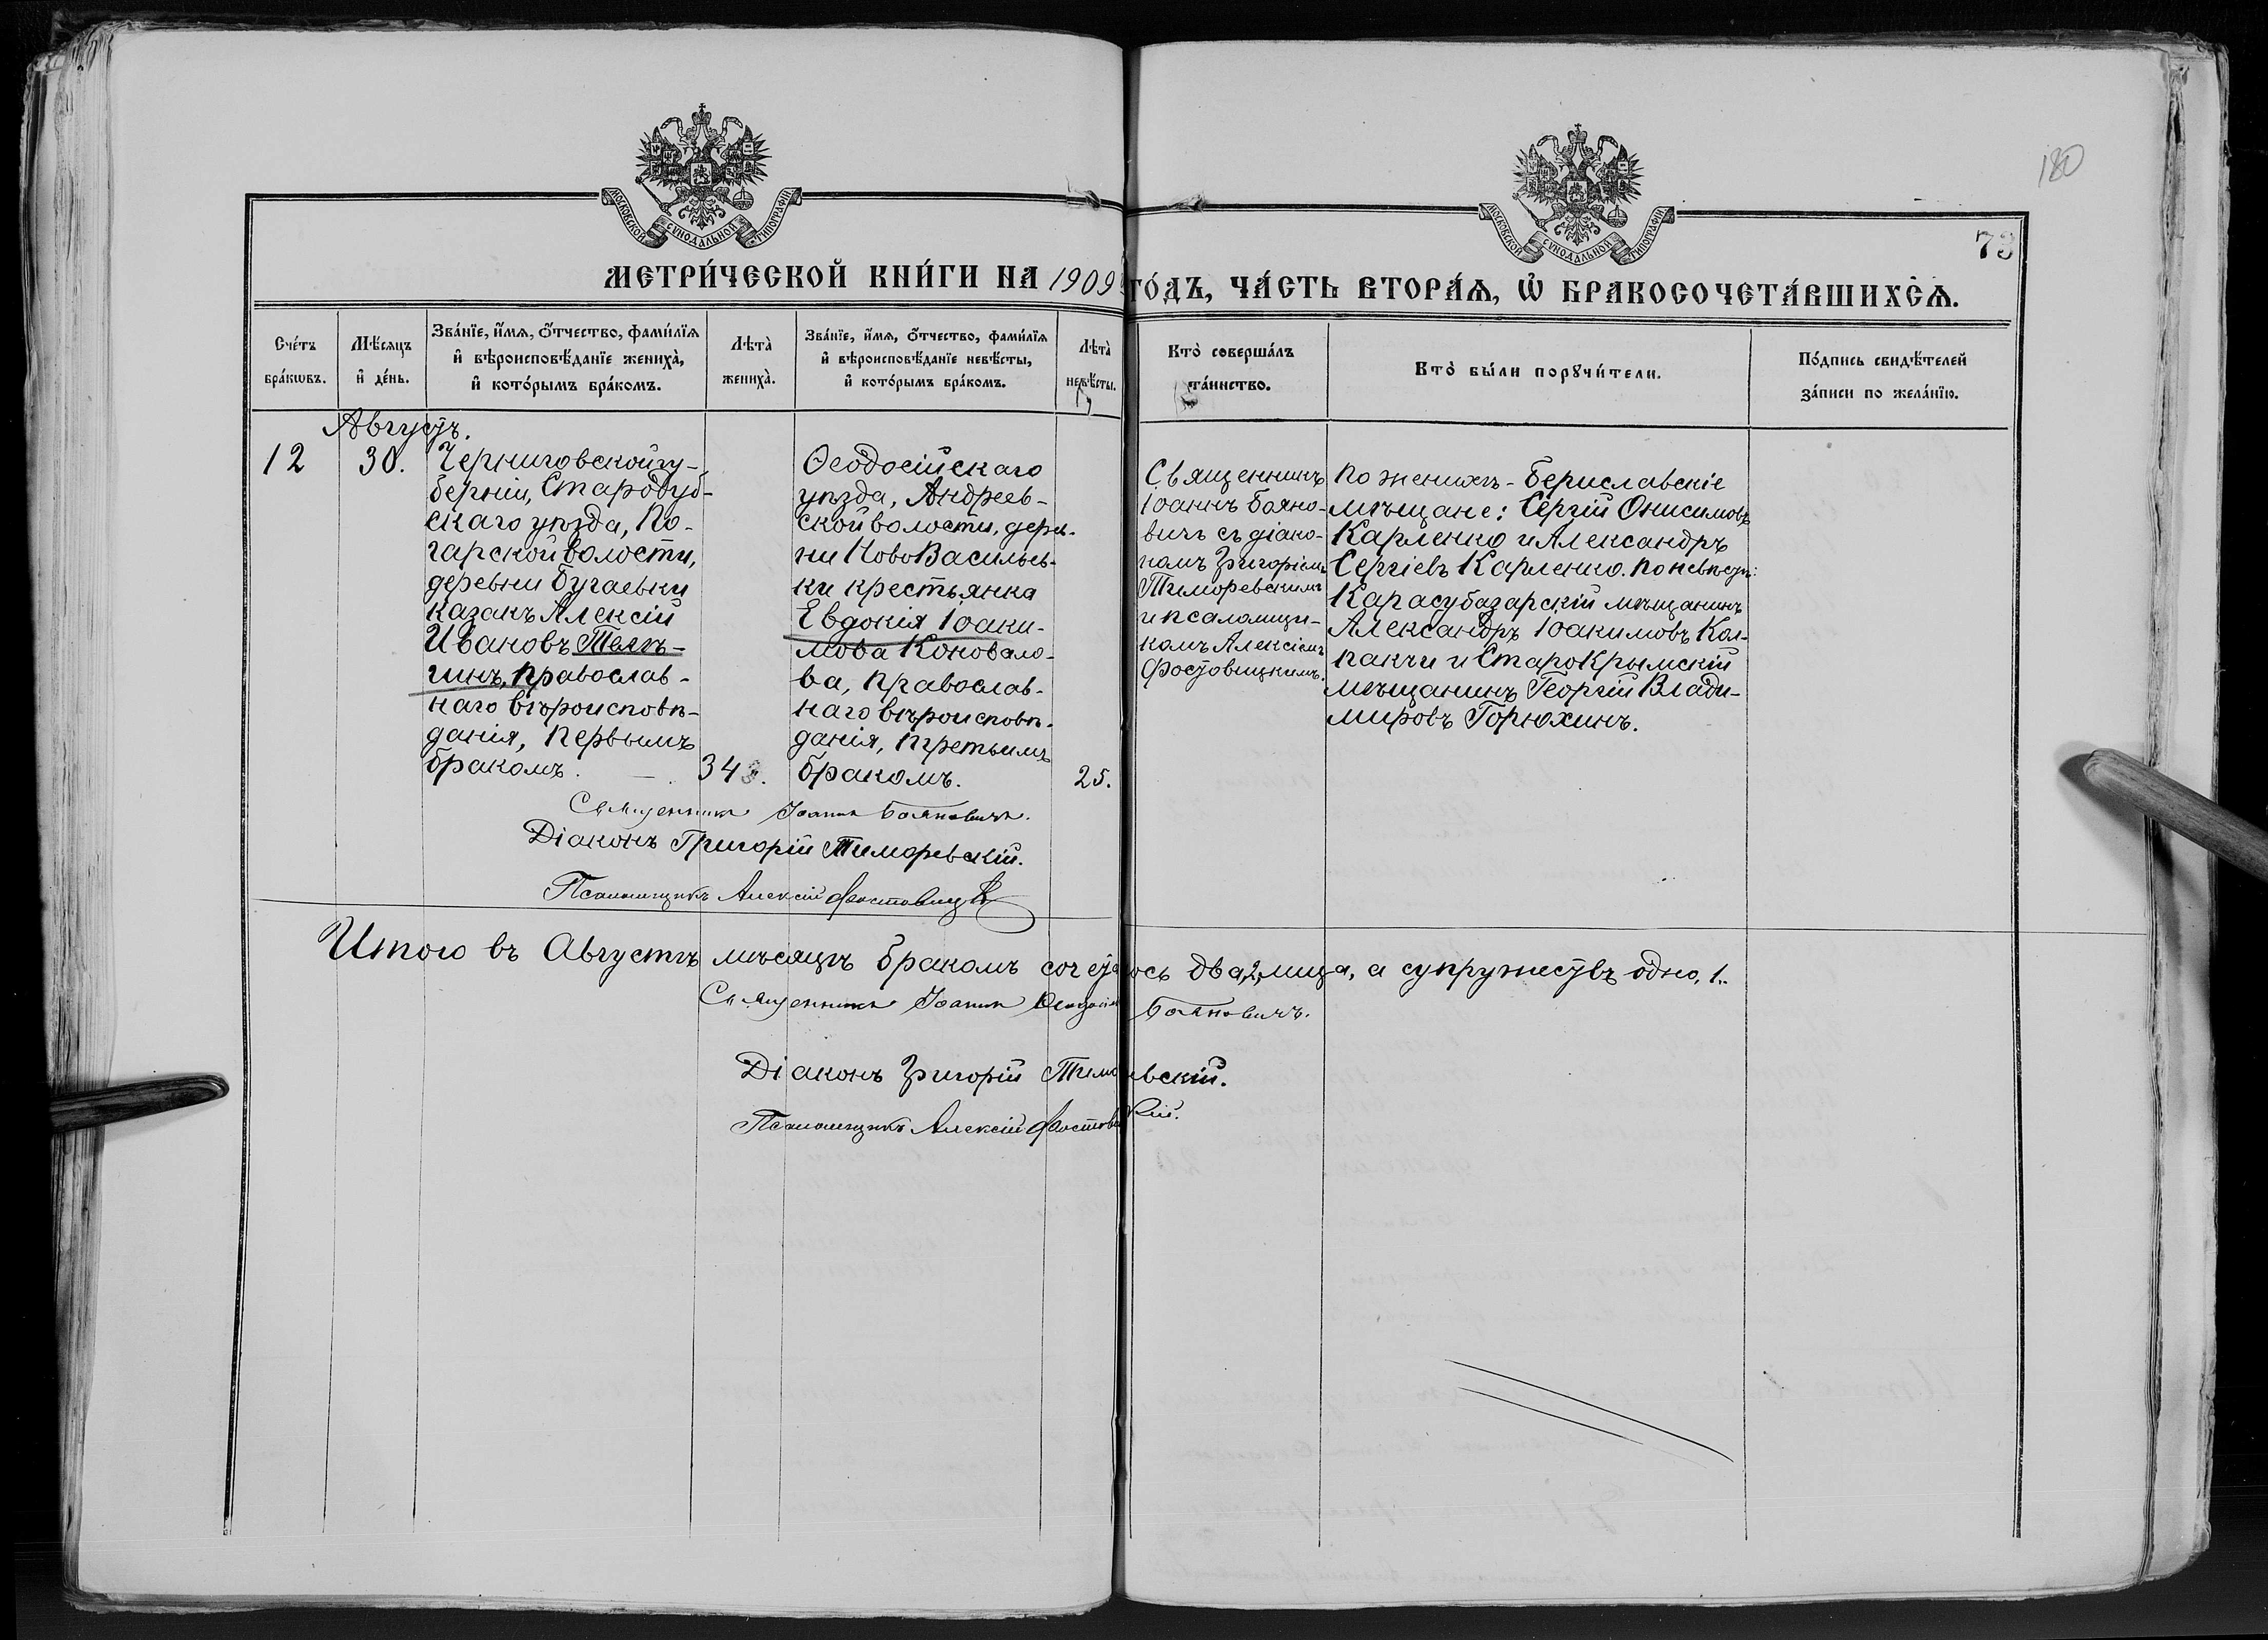 180
73
МОСКОВСКОЙ СУНОДАЛЬНОЙ ТИПОГРАФІИ
МОСКОВСКОЙ СУНОДАЛЬНОЙ ТИПОГРАФІИ
МЕТРИ́ЧЕСКОЙ КНИ́ГИ НА 1909 ГО́ДЪ, ЧА́СТЬ ВТОРА́Ѧ, Ѡ҆ БРАКОСОЧЕТА́ВШИХСѦ.
Сче́тъ
бра́кѡвъ.
Мѣ́сяцъ
и҆ де́нь.
Зва́нїе, и҆́мѧ, ѻ҆́тчество, фами́лїѧ
и҆ вѣроисповѣ́данїе жениха̀,
и҆ кото́рымъ бра́комъ.
Лѣта̀
жениха̀.
Зва́нїе, и҆́мѧ, ѻ҆́тчество, фами́лїѧ
и҆ вѣроисповѣ́данїе невѣ́сты,
и҆ кото́рымъ бра́комъ.
Лѣта̀
невѣ́сты.
Кто̀ соверша́лъ
та́инство.
Кто̀ бы́ли порꙋчи́тели.
По́дпись свидѣ́телей
за́писи по жела́нїю.
Августъ.
12
30.
Черниговской гу-
берніи, Стародуб-
скаго уѣзда, По-
гарской волости,
деревни Бугаевки
казакъ Алексій
Ивановъ Телѣ-
гинъ, православ-
наго вѣроисповѣ-
данія, первымъ
бракомъ.
34
Ѳеодосійскаго
уѣзда, Андреев-
ской волости, дерев-
ни НовоВасильев-
ки крестьянка
Евдокія Іоаки-
мова Коновало-
ва, православ-
наго вѣроисповѣ-
данія, третьимъ
бракомъ.
25.
Священникъ
Іоаннъ Бояно-
вичъ съ діако-
номъ Григоріемъ
Тиморевскимъ
и псаломщи-
комъ Алексіемъ
Фостовицкимъ.
По женихѣ - Бериславскіе
мѣщане: Сергій Онисимовъ
Карпенко и Александръ
Сергіевъ Карпенко. По невѣстѣ:
Карасубазарскій мѣщанинъ
Александръ Іоакимовъ Кол-
пакчи и СтароКрымскій
мѣщанинъ Георгій Влади-
мировъ Горюхинъ.
Священникъ Іоаннъ Бояновичъ.
Діаконъ Григорій Тиморевскій.
Псаломщикъ Алексій Фостовицкій
Итого въ Августѣ мѣсяцѣ бракомъ сочеталось два, 2, лица, а супружествъ одно, 1.
Священникъ Іоаннъ Бояновичъ.
Діаконъ Григорій Тиморевскій.
Псаломщикъ Алексій Фостовицкій.